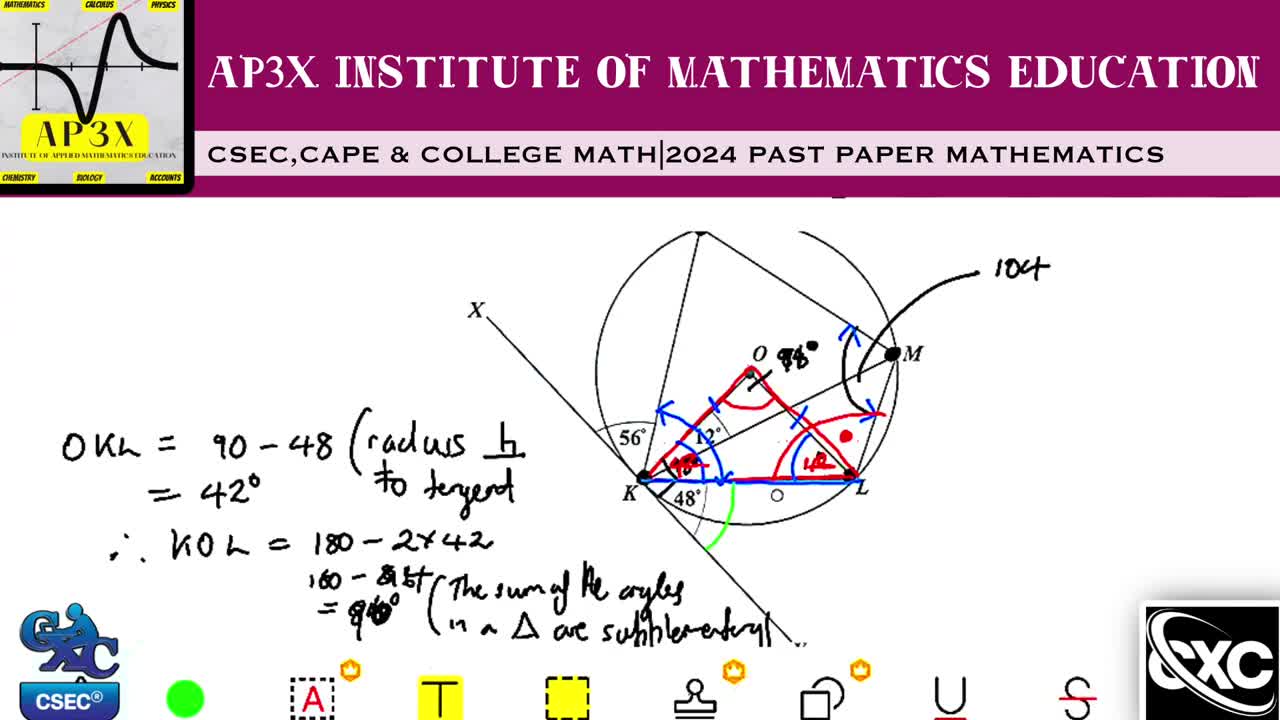 MATHEMATICS CALCULUS PHYSICS
AP3X
INSTITUTE OF APPLIED MATHEMATICS EDUCATION
CHEMISTRY BIOLOGY ACCOUNTS
AP3X INSTITUTE OF MATHEMATICS EDUCATION
CSEC,CAPE & COLLEGE MATH|2024 PAST PAPER MATHEMATICS
104
X
O
M
56°
12°
42
K
48°
L
OKL = 90 - 48 (radius
to
= 42°
∴ KOL = 180 - 2×42
(The sum of the angles
in a Δ are
CSEC®
A
T
U
S
CXC